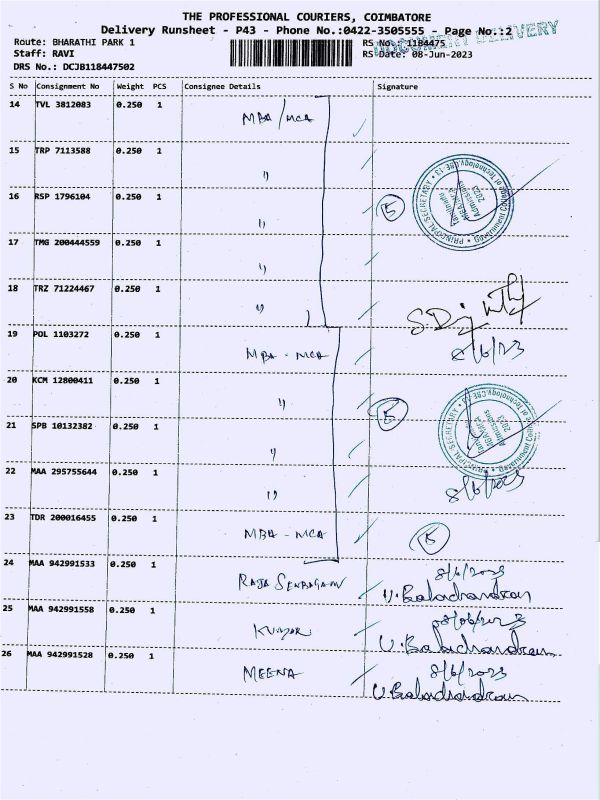 THE PROFESSIONAL COURIERS, COIMBATORE
Delivery Runsheet - P43 - Phone No.:0422-3505555 - Page No.:2
DOCUMENT DELIVERY
Route: BHARATHI PARK 1 RS No. 1184475
Staff: RAVI RS Date: 08-Jun-2023
DRS No.: DCJB118447502
S No Consignment No Weight PCS Consignee Details Signature
14 TVL 3812083 0.250 1 MBA/MCA
15 TRP 7113588 0.250 1 "
16 RSP 1796104 0.250 1 " 5
PRINCIPAL SECRETARY • Government College of Technology, CBE-13 •
Tamilnadu
MBA/MCA
Admissions
2023
17 TMG 200444559 0.250 1 "
18 TRZ 71224467 0.250 1 "
19 POL 1103272 0.250 1 MBA - MCA 8/6/23
20 KCM 12800411 0.250 1 "
21 SPB 10132382 0.250 1 " 5
PRINCIPAL SECRETARY • Government College of Technology, CBE-13 •
Tamilnadu
MBA/MCA
Admissions
2023
22 MAA 295755644 0.250 1 " 8/6/2023
23 TDR 200016455 0.250 1 MBA - MCA 5
24 MAA 942991533 0.250 1 RAJA SENBAGAM 8/6/2023
V. Balachandran
25 MAA 942991558 0.250 1 KUMAR 08/06/2023
V. Balachandran
26 MAA 942991528 0.250 1 MEENA 8/6/2023
V. Balachandran